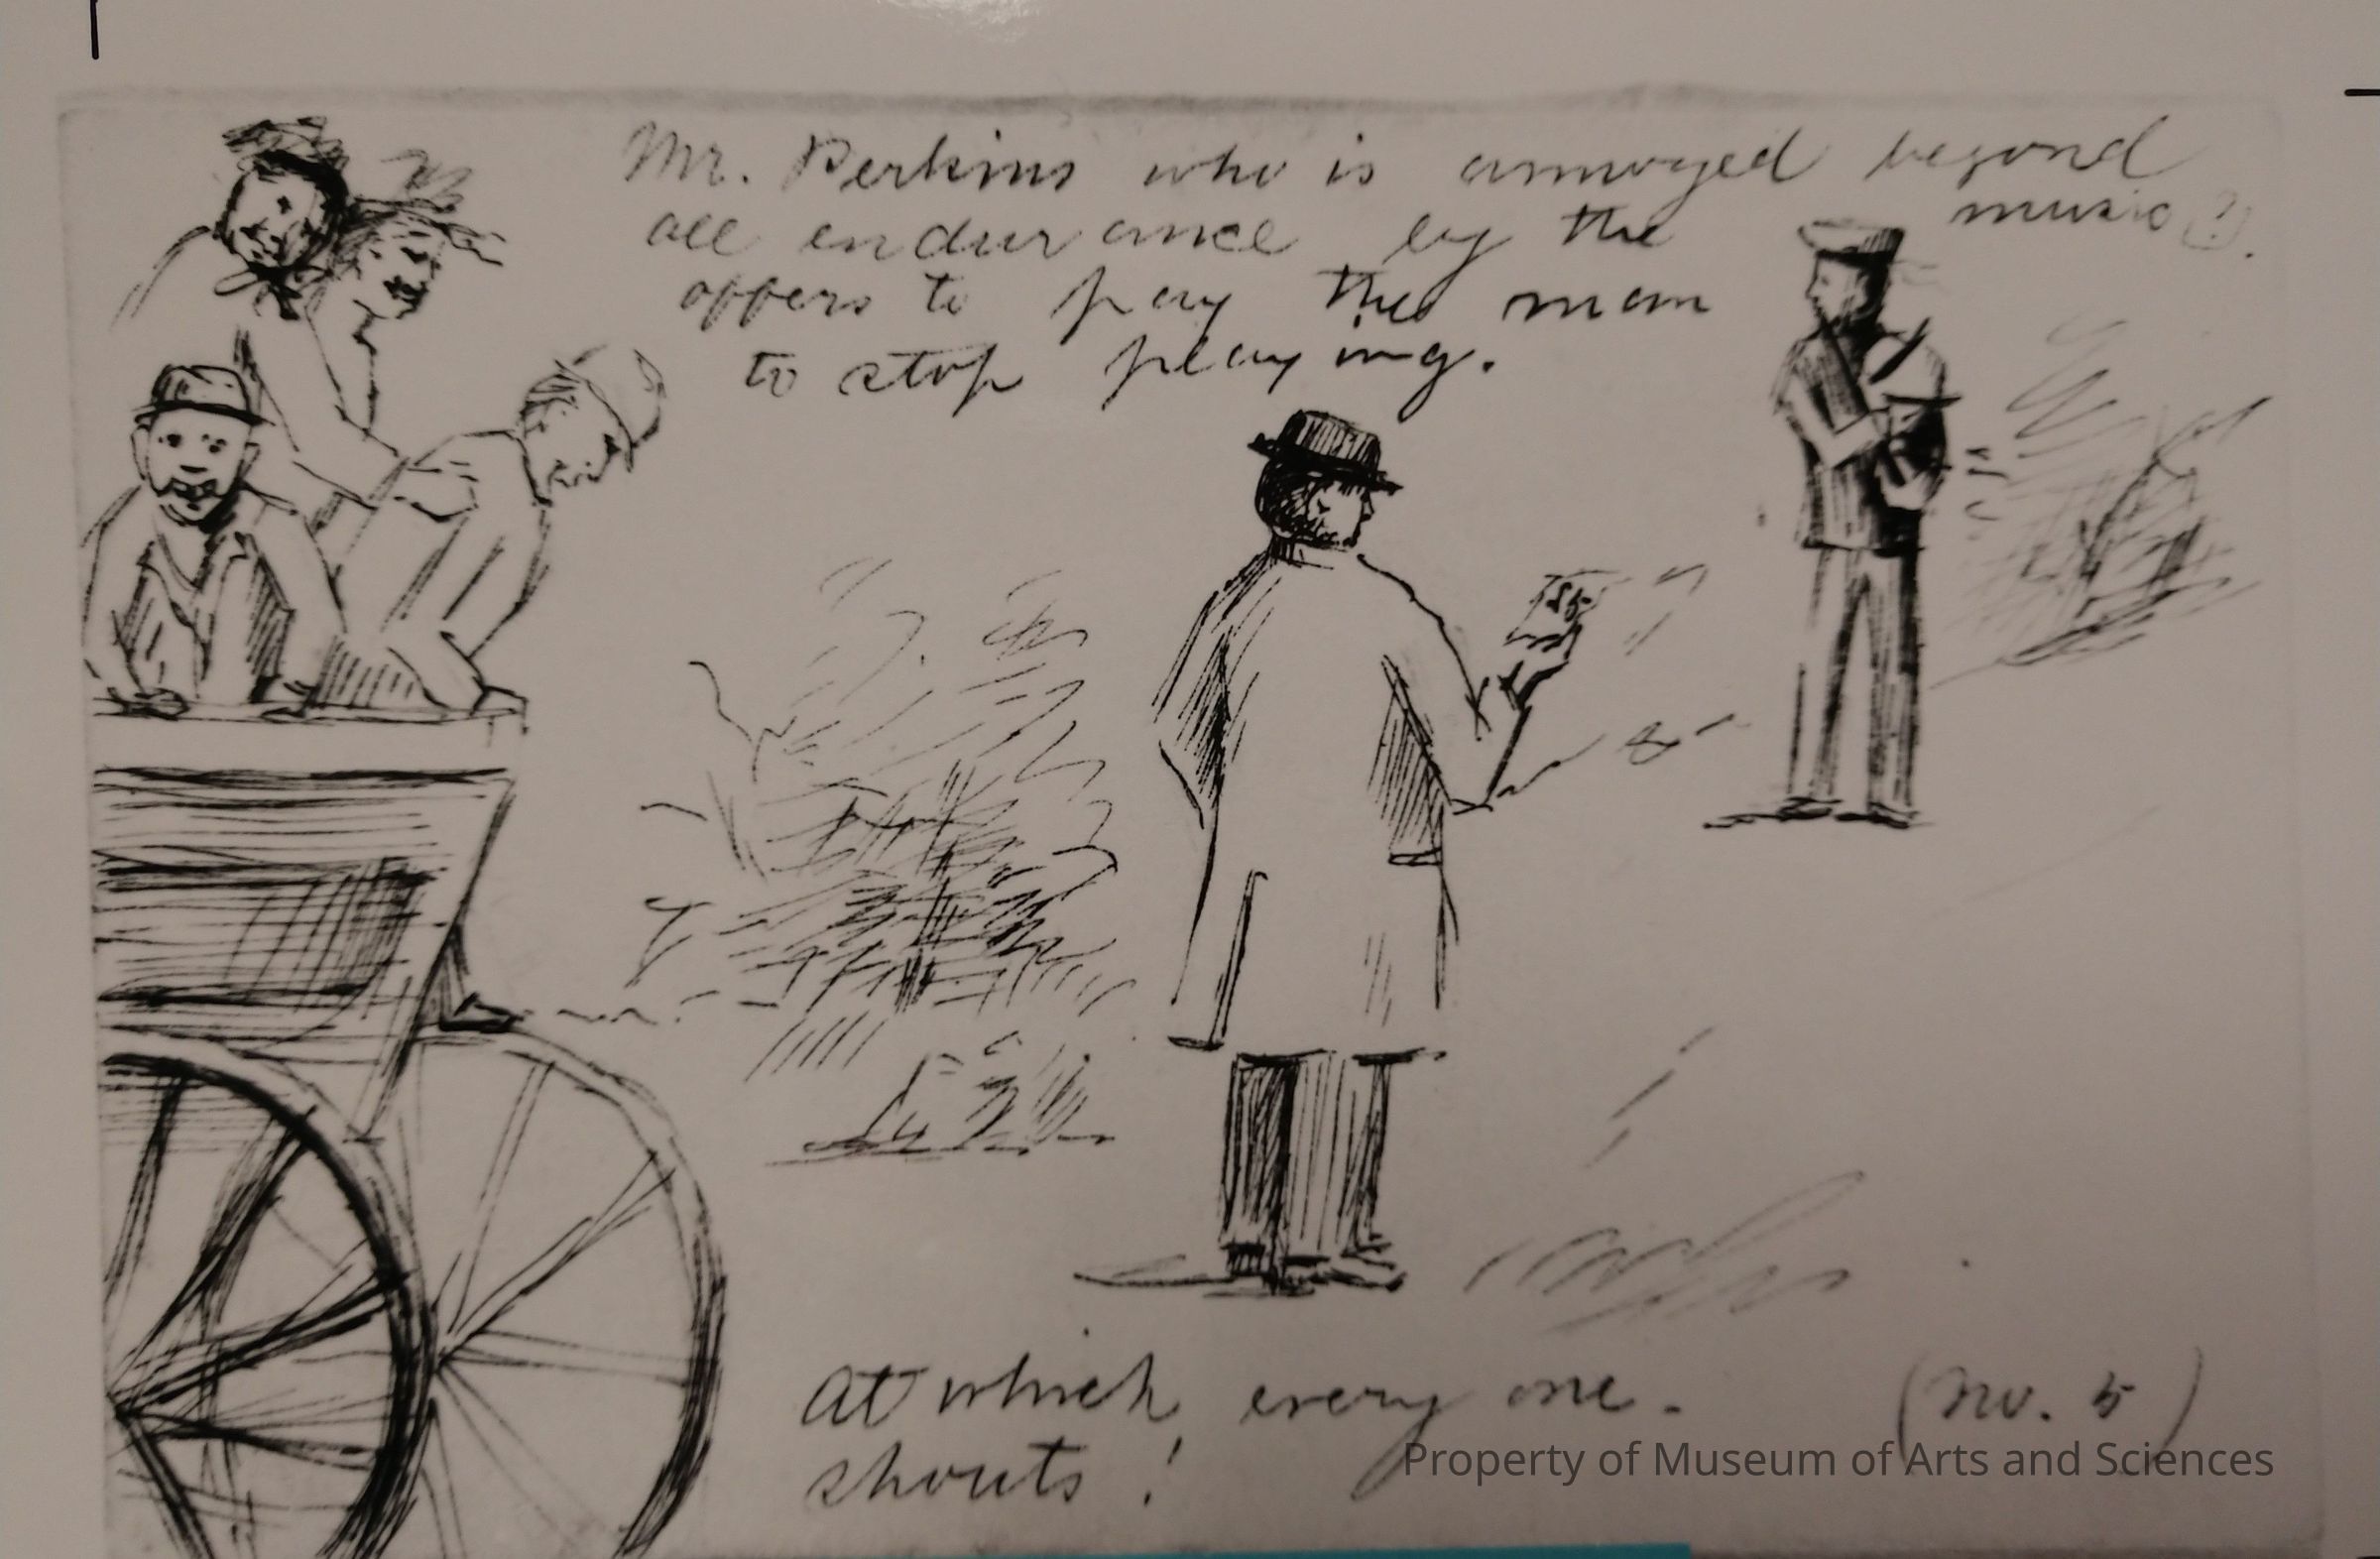 Mr. Perkins who is annoyed beyond
all endurance by the music (?).
offers to pay the man
to stop playing.
$5
At which, every one.
shouts!
(No. 5)
Property of Museum of Arts and Sciences